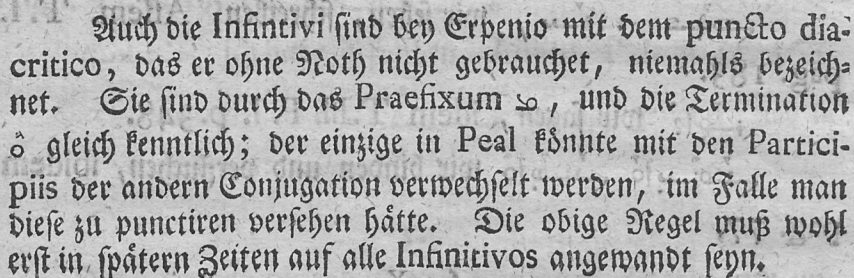 Auch die Infintivi ſind bey Erpenio mit dem puncto dia-
critico, das er ohne Noth nicht gebrauchet, niemahls bezeich-
net. Sie ſind durch das Praefixum ܡ, und die Termination
ܘ gleich kenntlich; der einzige in Peal könnte mit den Partici-
piis der andern Conjugation verwechſelt werden, im Falle man
dieſe zu punctiren verſehen hätte. Die obige Regel muß wohl
erſt in ſpätern Zeiten auf alle Infinitivos angewandt ſeyn.